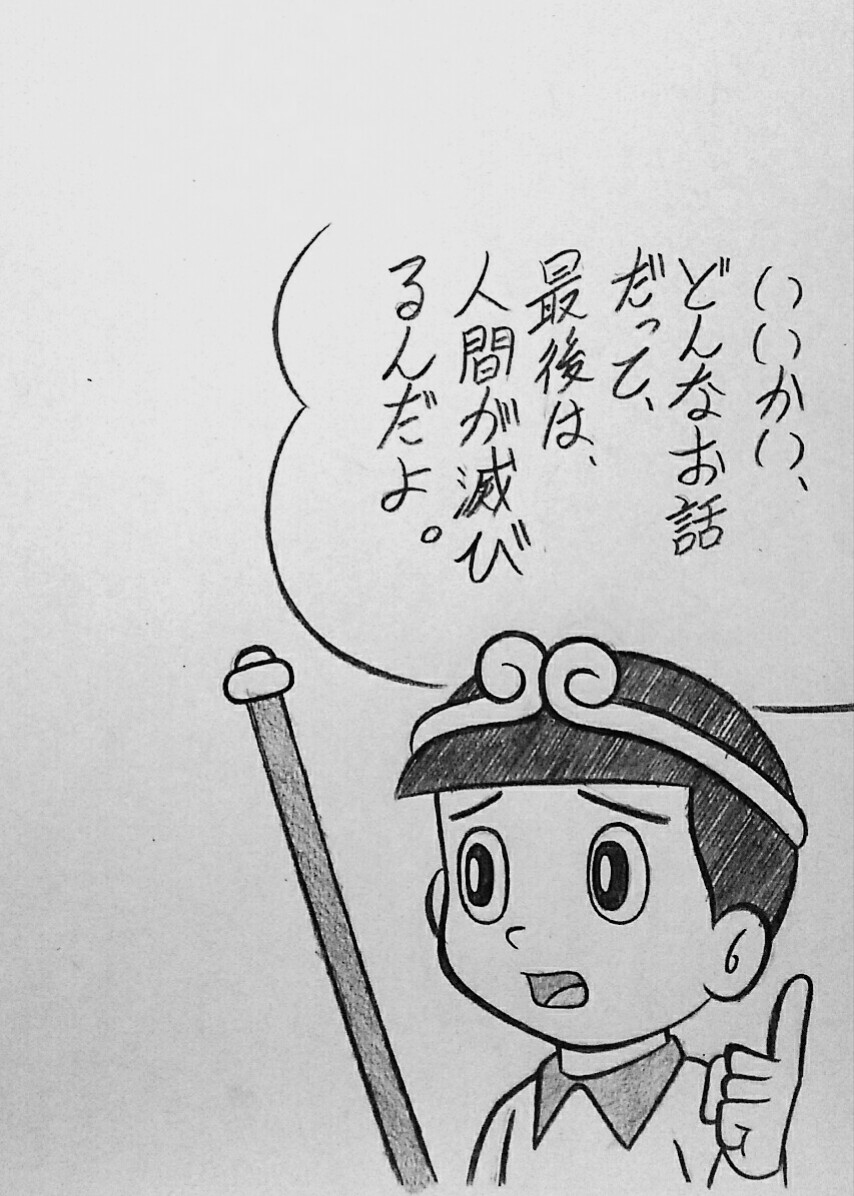 いいかい、
どんなお話
だって、
最後は、
人間が滅び
るんだよ。